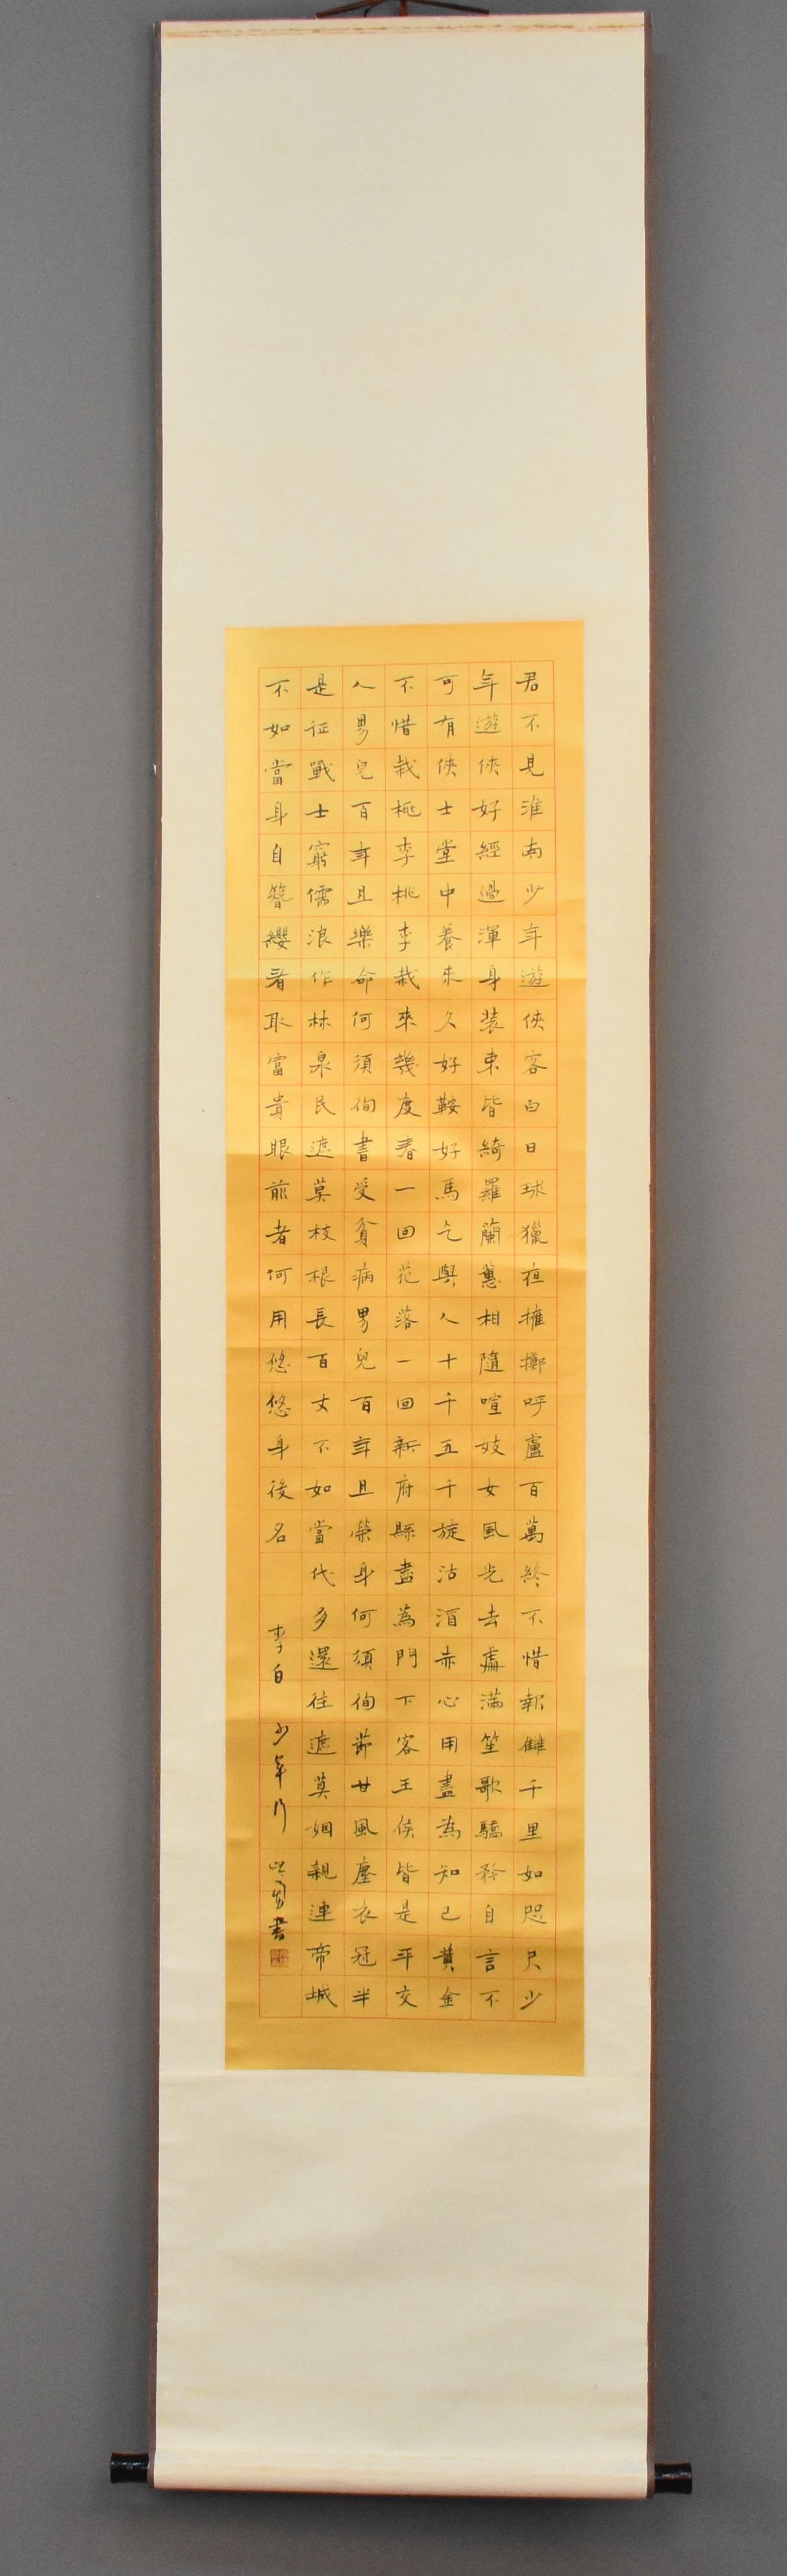 君不見淮南少年遊俠客白日球獵夜擁擲呼盧百萬終不惜報讎千里如咫尺少
年遊俠好經過渾身裝束皆綺羅蘭蕙相隨喧妓女風光去處滿笙歌驕矜自言不
可有俠士堂中養來久好鞍好馬乞與人十千五千旋沽酒赤心用盡為知己黃金
不惜栽桃李桃李栽來幾度春一回花落一回新府縣盡為門下客王侯皆是平交
人男兒百年且樂命何須徇書受貧病男兒百年且榮身何須徇節甘風塵衣冠半
是征戰士窮儒浪作林泉民遮莫枝根長百丈不如當代多還往遮莫姻親連帝城
不如當身自簪纓看取富貴眼前者何用悠悠身後名
李白 少年行 書